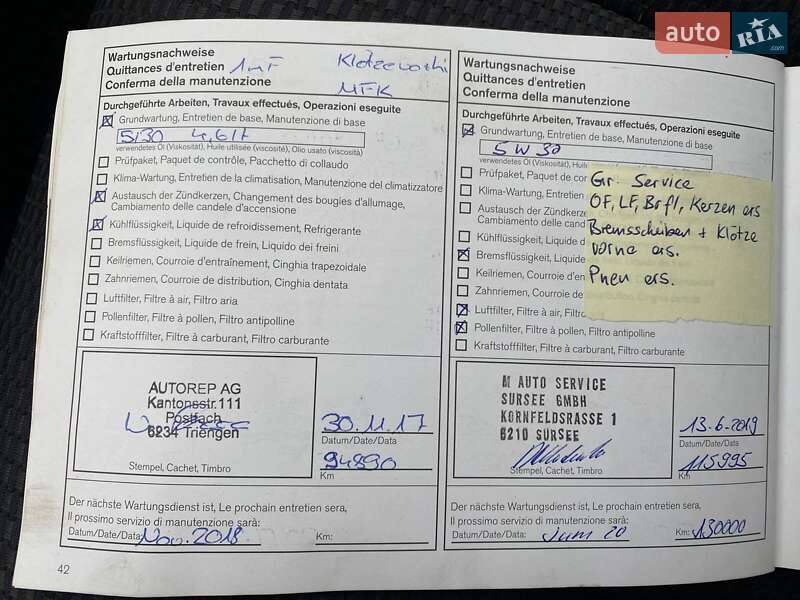 auto RIA .com
Wartungsnachweise
Quittances d'entretien
Conferma della manutenzione
MFK
Durchgeführte Arbeiten, Travaux effectués, Operazioni eseguite
Grundwartung, Entretien de base, Manutenzione di base
5/30 4,6 lt
verwendetes Öl (Viskosität), Huile utilisée (viscosité), Olio usato (viscosità)
Prüfpaket, Paquet de contrôle, Pacchetto di collaudo
Klima-Wartung, Entretien de la climatisation, Manutenzione del climatizzatore
Austausch der Zündkerzen, Changement des bougies d'allumage,
Cambiamento delle candele d'accensione
Kühlflüssigkeit, Liquide de refroidissement, Refrigerante
Bremsflüssigkeit, Liquide de frein, Liquido dei freini
Keilriemen, Courroie d'entraînement, Cinghia trapezoidale
Zahnriemen, Courroie de distribution, Cinghia dentata
Luftfilter, Filtre à air, Filtro aria
Pollenfilter, Filtre à pollen, Filtro antipolline
Kraftstofffilter, Filtre à carburant, Filtro carburante
AUTOREP AG
Kantonsstr.111
Postfach
6234 Triengen
Stempel, Cachet, Timbro
30.11.17
Datum/Date/Data
94890
Km
Der nächste Wartungsdienst ist, Le prochain entretien sera,
Il prossimo servizio di manutenzione sarà:
Datum/Date/Data: Nov. 2018 Km:
42
Wartungsnachweise
Quittances d'entretien
Conferma della manutenzione
Durchgeführte Arbeiten, Travaux effectués, Operazioni eseguite
Grundwartung, Entretien de base, Manutenzione di base
5W30
verwendetes Öl (Viskosität), Huile utilisée
Prüfpaket, Paquet de
Klima-Wartung, Entretien
Austausch der Zündkerzen
Cambiamento delle
Kühlflüssigkeit, Liquide d
Bremsflüssigkeit, Liquide
Keilriemen, Courroie
Zahnriemen, Courroie de
Luftfilter, Filtre à air, Filtro
Pollenfilter, Filtre à pollen, Filtro antipolline
Kraftstofffilter, Filtre à carburant, Filtro carburante
Gr. Service
OF, LF, Brfl, Kerzen ers
Bremsscheiben + Klötze
vorne ers.
Pneu ers.
M AUTO SERVICE
SURSEE GMBH
KORNFELDSRASSE 1
6210 SURSEE
Stempel, Cachet, Timbro
13.6.2019
Datum/Date/Data
115995
Km
Der nächste Wartungsdienst ist, Le prochain entretien sera,
Il prossimo servizio di manutenzione sarà:
Datum/Date/Data: Jum 20 Km: 130000